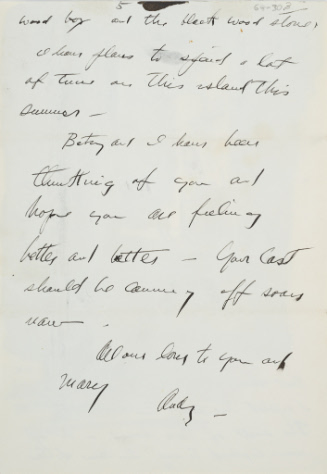 5
64-308
wood box and the black wood stove.
I have plans to spend a lot
of time on this island this
summer —
Betsy and I have been
thinking of you and
hope you are feeling
better and better — Your cast
should be coming off soon
now —
All our love to you and
Mary
Andy —